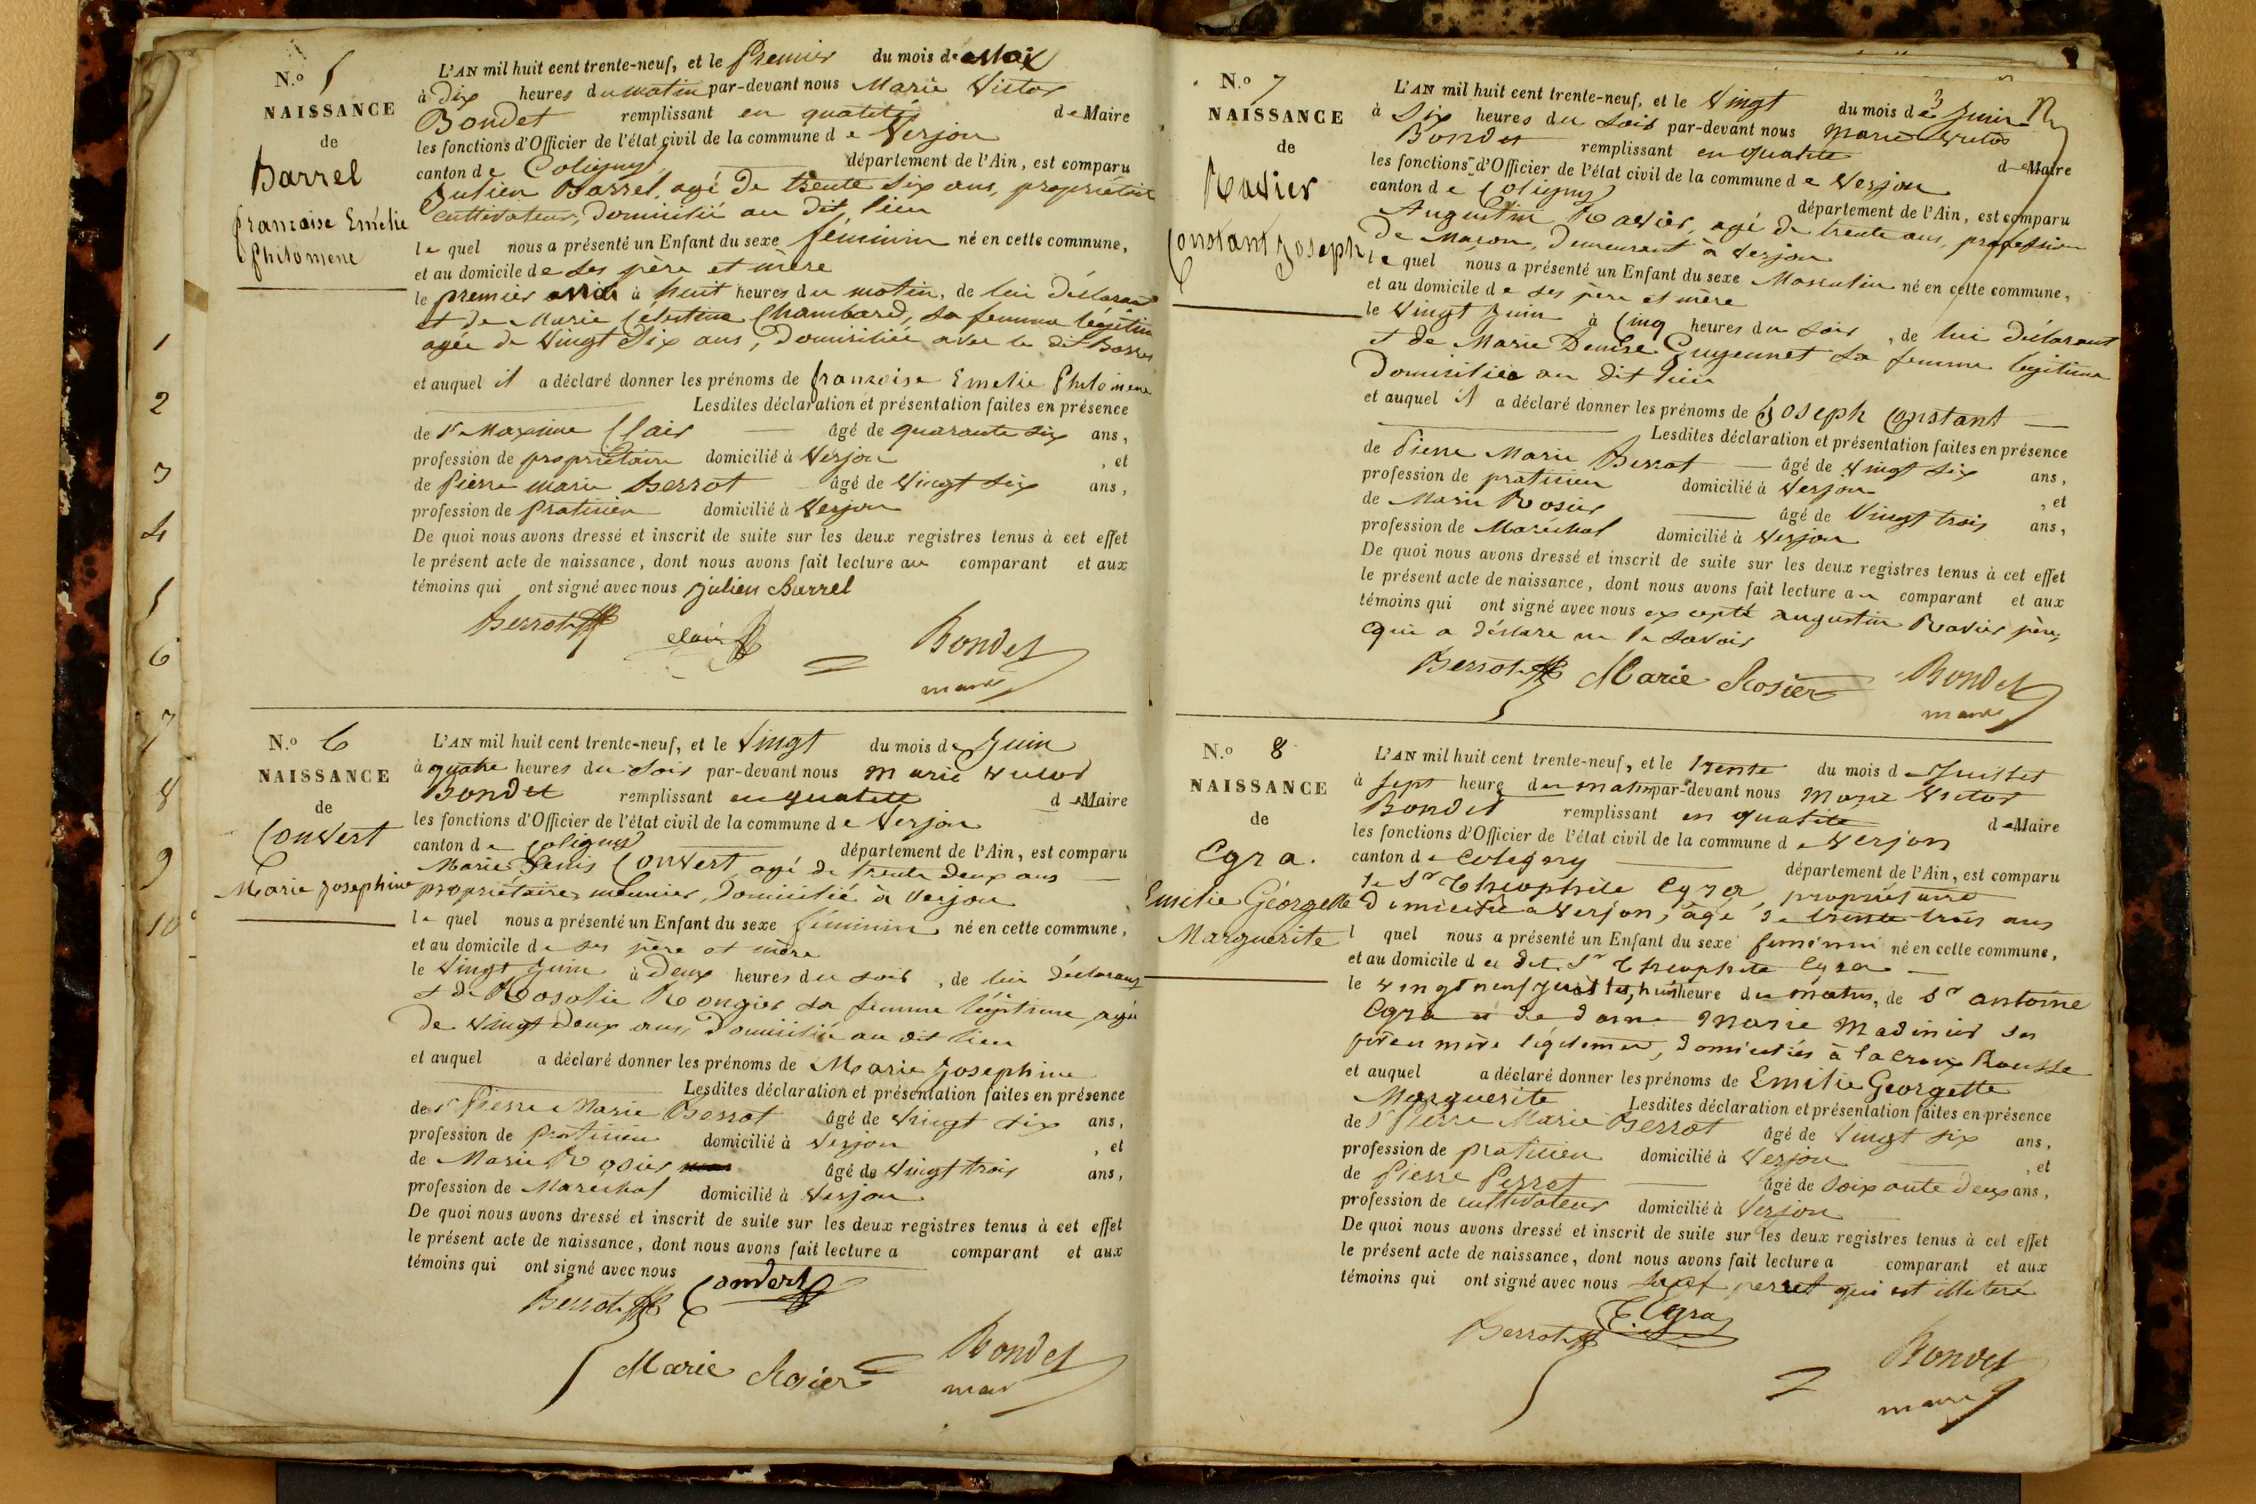 N.º 5
NAISSANCE
de
Barrel
françoise Emélie
Philomene
L'AN mil huit cent trente-neuf, et le Premier du mois de Mai
à Dix heures du matin par-devant nous Marie Victor
Bondet remplissant en qualité de Maire
les fonctions d'Officier de l'état civil de la commune de Verjon
canton de Coligny département de l'Ain, est comparu
Julien Barrel, agé de trente Six ans, propriétaire
cultivateur, Domicilié au dit lieu
le quel nous a présenté un Enfant du sexe féminin né en cette commune,
et au domicile de ses père et mère
le premier Mai à huit heures du matin, de lui déclarant
et de Marie Célestine Chambard, sa femme légitime
agée de Vingt Six ans, Domiciliée avec le dit Barrel
et auquel il a déclaré donner les prénoms de françoise Emelie Philomene
Lesdites déclaration et présentation faites en présence
de Sr Maxime Clair âgé de quarante six ans,
profession de propriétaire domicilié à Verjon , et
de Pierre marie Berrot âgé de Vingt Six ans,
profession de Praticien domicilié à Verjon
De quoi nous avons dressé et inscrit de suite sur les deux registres tenus à cet effet
le présent acte de naissance, dont nous avons fait lecture au comparant et aux
témoins qui ont signé avec nous julien Barrel
Berrot clair Bondet
maire
1
2
3
4
5
6
7
8
9
10
N.º 6
NAISSANCE
de
Convert
Marie Josephine
L'AN mil huit cent trente-neuf, et le Vingt du mois de Juin
à quatre heures du Soir par-devant nous Marie Victor
Bondet remplissant en qualité de Maire
les fonctions d'Officier de l'état civil de la commune de Verjon
canton de Coligny département de l'Ain, est comparu
Marie Denis Convert agé de trente Deux ans
propriétaire, meunier, Domicilié à Verjon
le quel nous a présenté un Enfant du sexe féminin né en cette commune,
et au domicile de ses père et mère
le Vingt Juin à Deux heures du soir, de lui déclarant
et de Rosalie Rongier sa femme légitime, agée
de Vingt Deux ans, Domiciliée au dit lieu
et auquel a déclaré donner les prénoms de Marie Josephine
Lesdites déclaration et présentation faites en présence
de Sr Pierre Marie Berrot âgé de Vingt six ans,
profession de Praticien domicilié à Verjon , et
de Marie Rosier âgé de Vingt trois ans,
profession de Maréchal domicilié à Verjon
De quoi nous avons dressé et inscrit de suite sur les deux registres tenus à cet effet
le présent acte de naissance, dont nous avons fait lecture a comparant et aux
témoins qui ont signé avec nous
Berrot Convert
Marie Rosier Bondet
maire
N.º 7
NAISSANCE
de
Ravier
Constant Joseph
L'AN mil huit cent trente-neuf, et le Vingt du mois de Juin
à Six heures du Soir par-devant nous Marie Victor
Bondet remplissant en qualité de Maire
les fonctions d'Officier de l'état civil de la commune de Verjon
canton de Coligny département de l'Ain, est comparu
Augustin Ravier, agé de trente ans, profession
de Maçon, Demeurant à Verjon
le quel nous a présenté un Enfant du sexe Masculin né en cette commune,
et au domicile de ses père et mère
le Vingt Juin à Cinq heures du soir, de lui déclarant
et de Marie Denise Guyennet sa femme légitime
Domiciliée au dit lieu
et auquel il a déclaré donner les prénoms de Joseph Constant
Lesdites déclaration et présentation faites en présence
de Pierre Marie Berrot âgé de Vingt Six ans,
profession de praticien domicilié à Verjon , et
de Marie Rosier âgé de Vingt trois ans,
profession de Maréchal domicilié à Verjon
De quoi nous avons dressé et inscrit de suite sur les deux registres tenus à cet effet
le présent acte de naissance, dont nous avons fait lecture au comparant et aux
témoins qui ont signé avec nous excepté augustin Ravier père,
qui a déclaré ne le savoir
Berrot Marie Rosier Bondet
maire
N.º 8
NAISSANCE
de
Cyra.
Emilie Géorgette
Marguerite
L'AN mil huit cent trente-neuf, et le trente du mois de Juillet
à sept heure du matin par-devant nous Marie Victor
Bondet remplissant en qualité de Maire
les fonctions d'Officier de l'état civil de la commune de Verjon
canton de Coligny département de l'Ain, est comparu
le Sr Théophile Cyra, propriétaire
domicilié à Verjon, âgé de trente trois ans
l quel nous a présenté un Enfant du sexe feminin né en cette commune,
et au domicile du dit Sr Théophile Cyra
le vingt neuf Juillet, à huit heure du matin, de Sr antoine
Cyra et de dame Marie Madinier ses
père et mère légitimes, domiciliés à la croix Rousse
et auquel a déclaré donner les prénoms de Emilie Georgette
Marguerite Lesdites déclaration et présentation faites en présence
de Sr Pierre Marie Berrot âgé de Vingt six ans,
profession de praticien domicilié à Verjon , et
de Pierre Perret âgé de Soixante deux ans,
profession de cultivateur domicilié à Verjon
De quoi nous avons dressé et inscrit de suite sur les deux registres tenus à cet effet
le présent acte de naissance, dont nous avons fait lecture a comparant et aux
témoins qui ont signé avec nous sauf perret qui est illiteré
T. Cyra
Berrot Bondet
maire